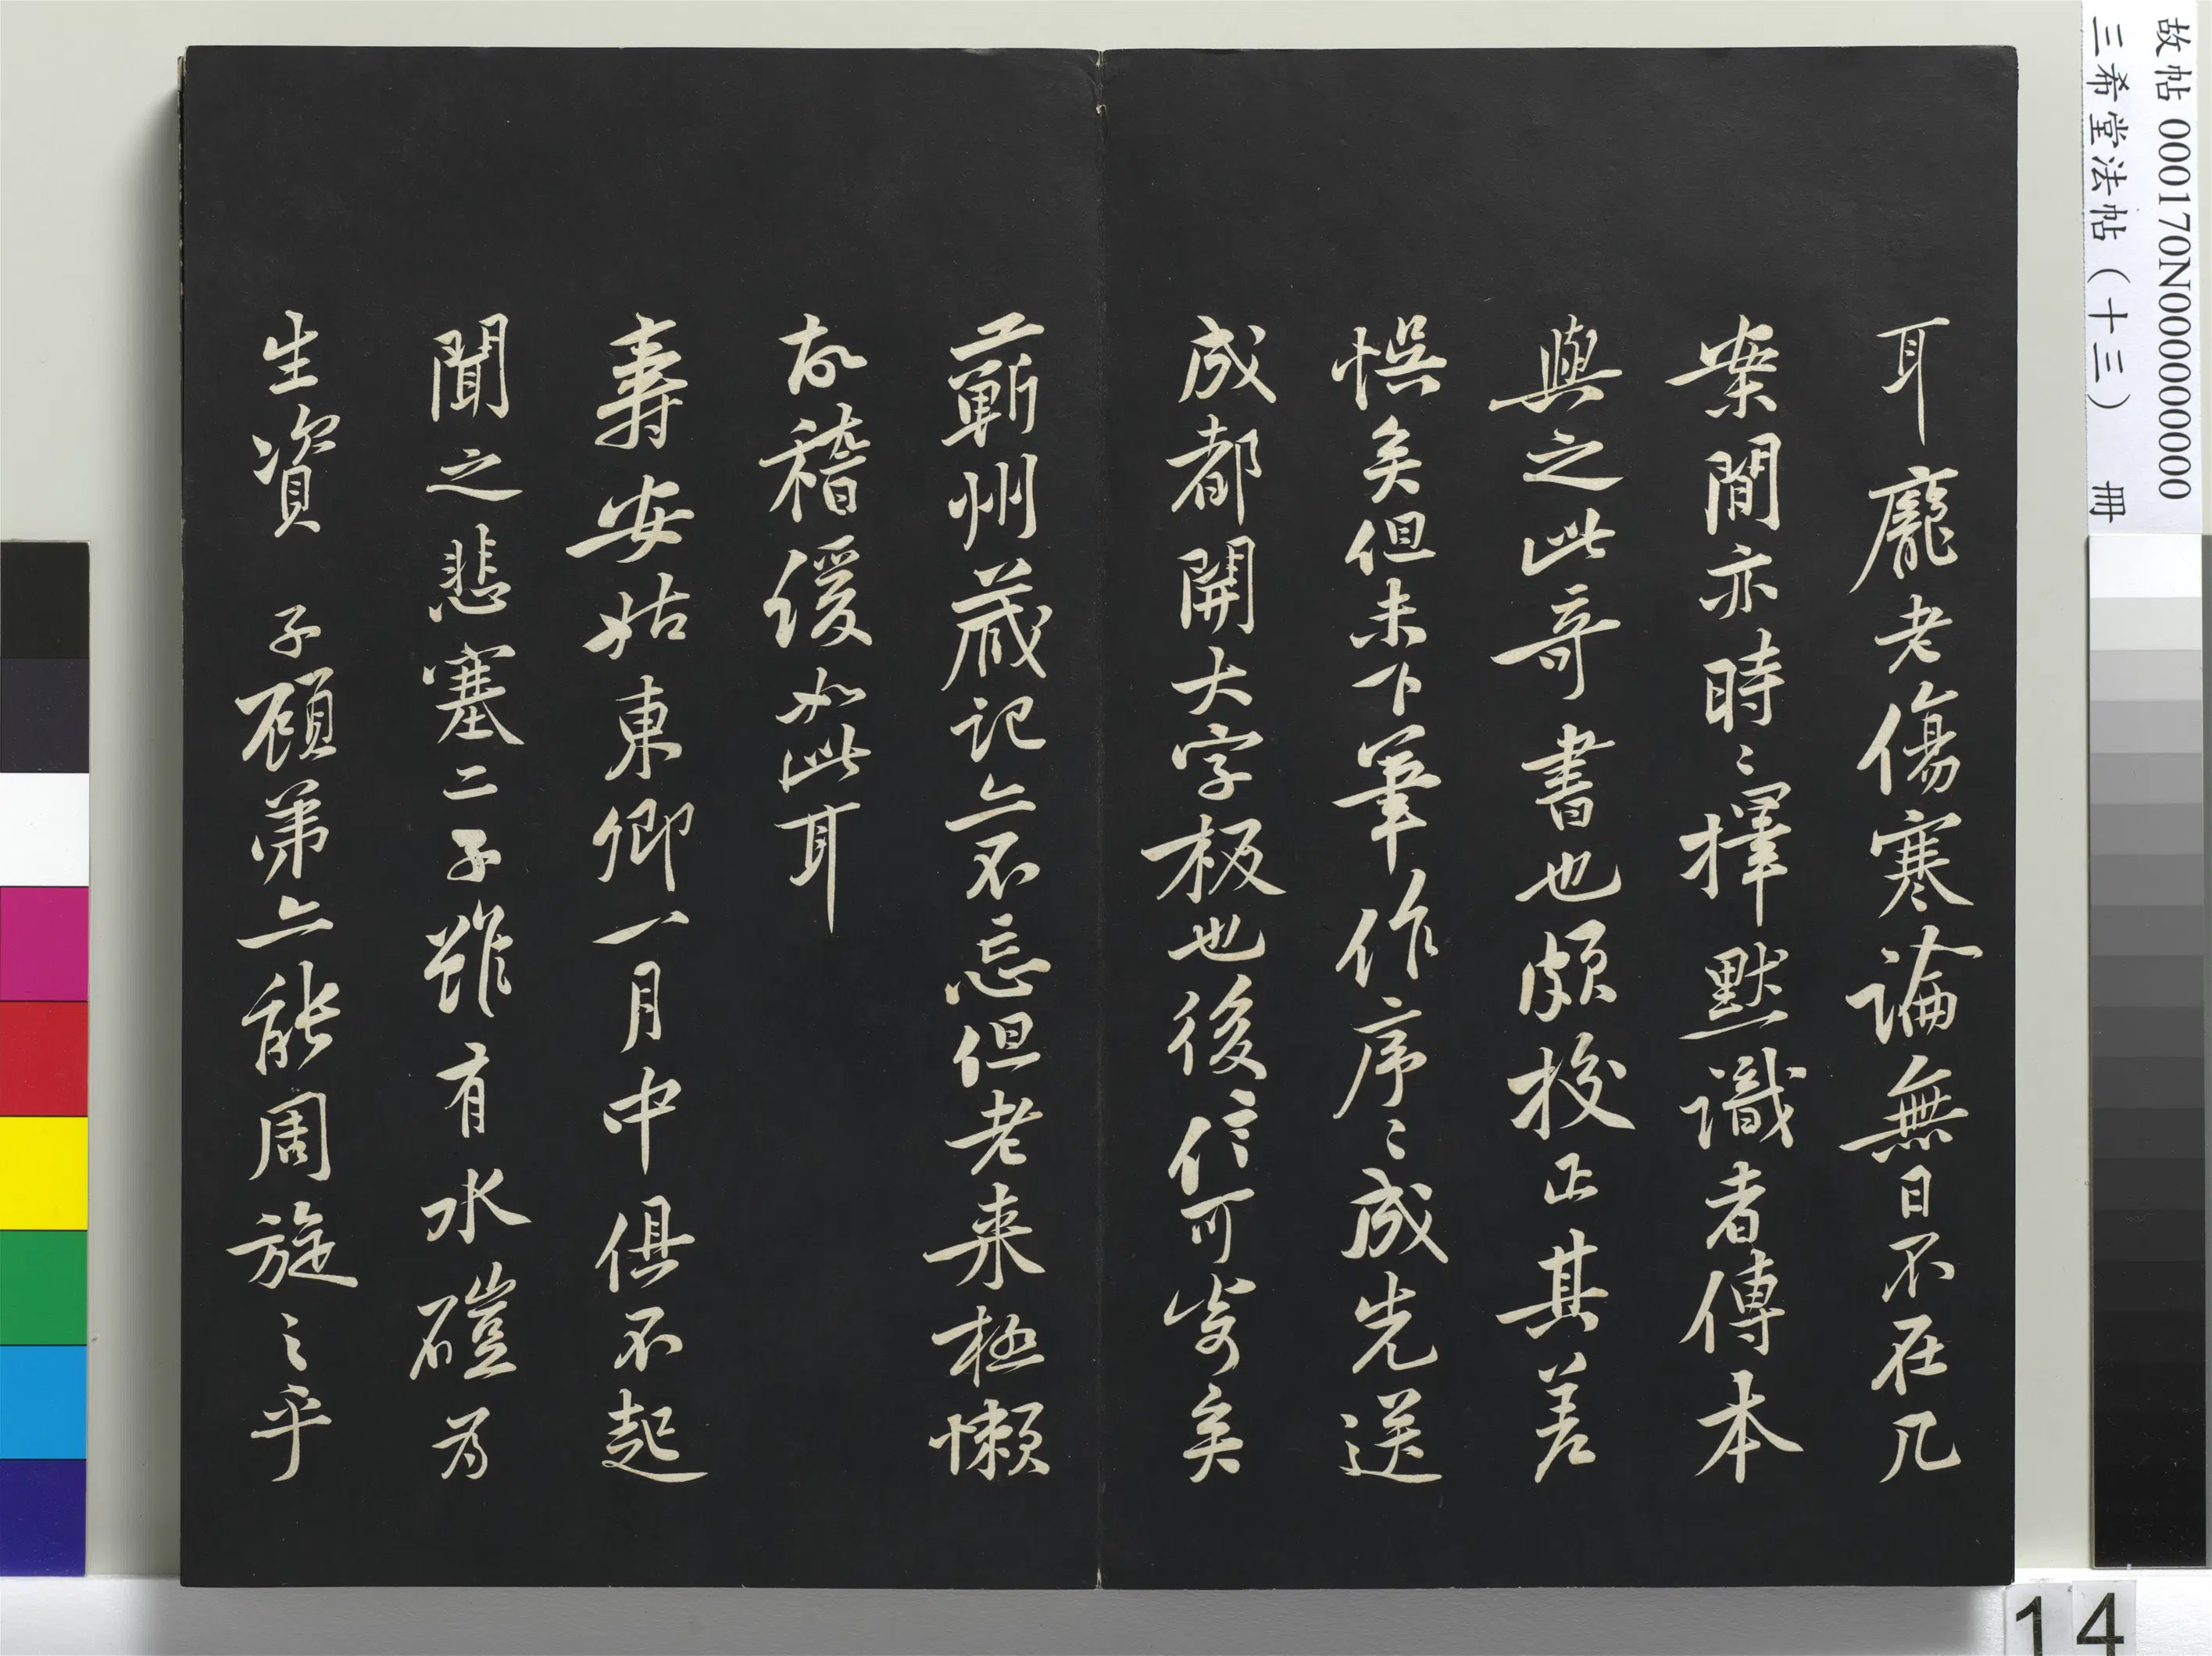 耳龐老傷寒論無日不在几
案間亦時〻擇默識者傳本
與之此奇書也頗校正其差
悮矣但未下筆作序〻成先送
成都開大字板也後信可寄矣
蘄州藏記亦不忘但老来極懶
故稽缓如此耳
壽安姑東卿一月中俱不起
聞之悲塞二子雖有水磑為
生資 子顧弟亦能周旋之乎
故帖 000170N000000000
三希堂法帖（十三） 冊
14